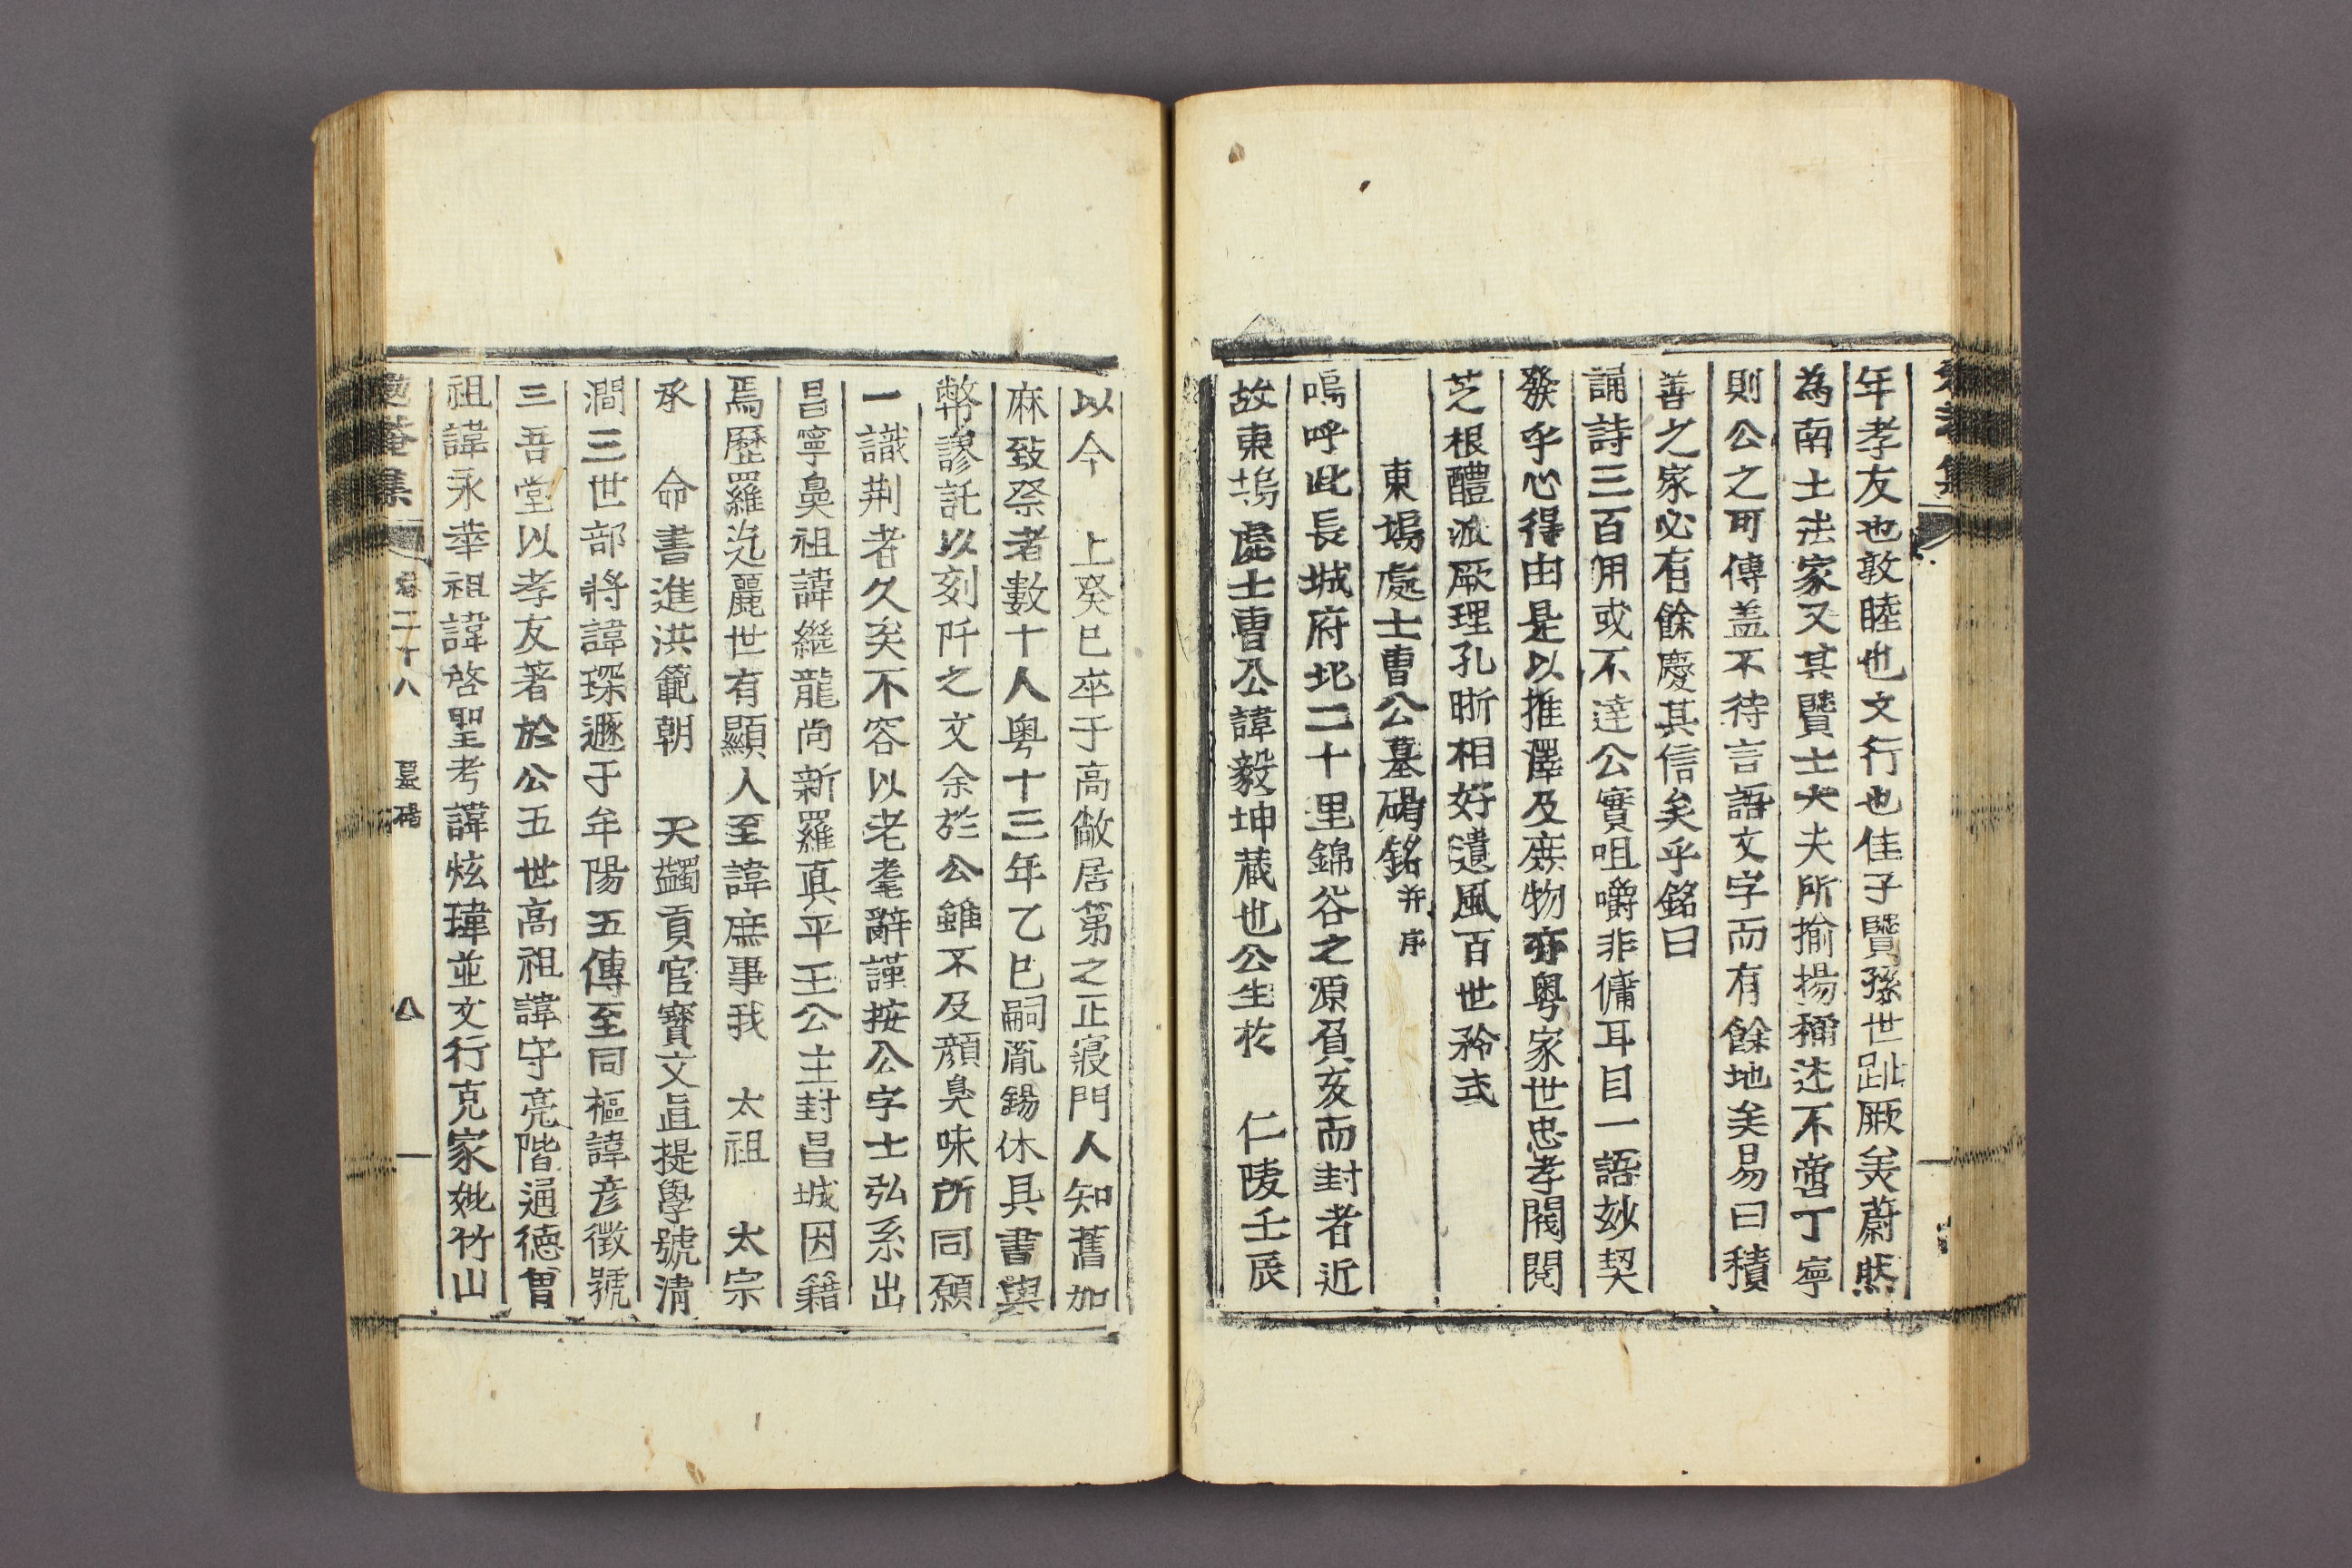 年孝友也敦睦也文行也佳子賢孫世趾厥美蔚然
為南土法家又其賢士大夫所揄揚稱述不啻丁寧
則公之可傳盖不待言語文字而有餘地矣易曰積
善之家必有餘慶其信矣乎銘曰
誦詩三百用或不達公實咀嚼非傭耳目一語玅契
發乎心得由是以推澤及庶物亦粤家世忠孝閥閱
芝根醴派厥理孔晣相好遺風百世矜式
東塢處士曹公墓碣銘并序
嗚呼此長城府北二十里錦谷之源負亥而封者近
故東塢處士曹公諱毅坤蔵也公生於 仁陵壬辰
以今 上癸巳卒于高敞居第之正寢門人知舊加
麻致祭者數十人粤十三年乙巳嗣胤錫休具書與
幣謬託以刻阡之文余於公雖不及顔臭味所同願
一識荆者久矣不容以老耄辭謹按公字士弘系出
昌寧鼻祖諱繼龍尚新羅真平王公主封昌城因籍
焉歷羅迄麗世有顯人至諱庶事我 太祖 太宗
承 命書進洪範朝 天蠲貢官寳文直提學號清
澗三世部將諱琛遯于牟陽五傳至同樞諱彦徵號
三吾堂以孝友著於公五世高祖諱守亮階通德曾
祖諱永華祖諱啓聖考諱炫瑋並文行克家妣竹山
菴集 卷二十八 墓碣 八